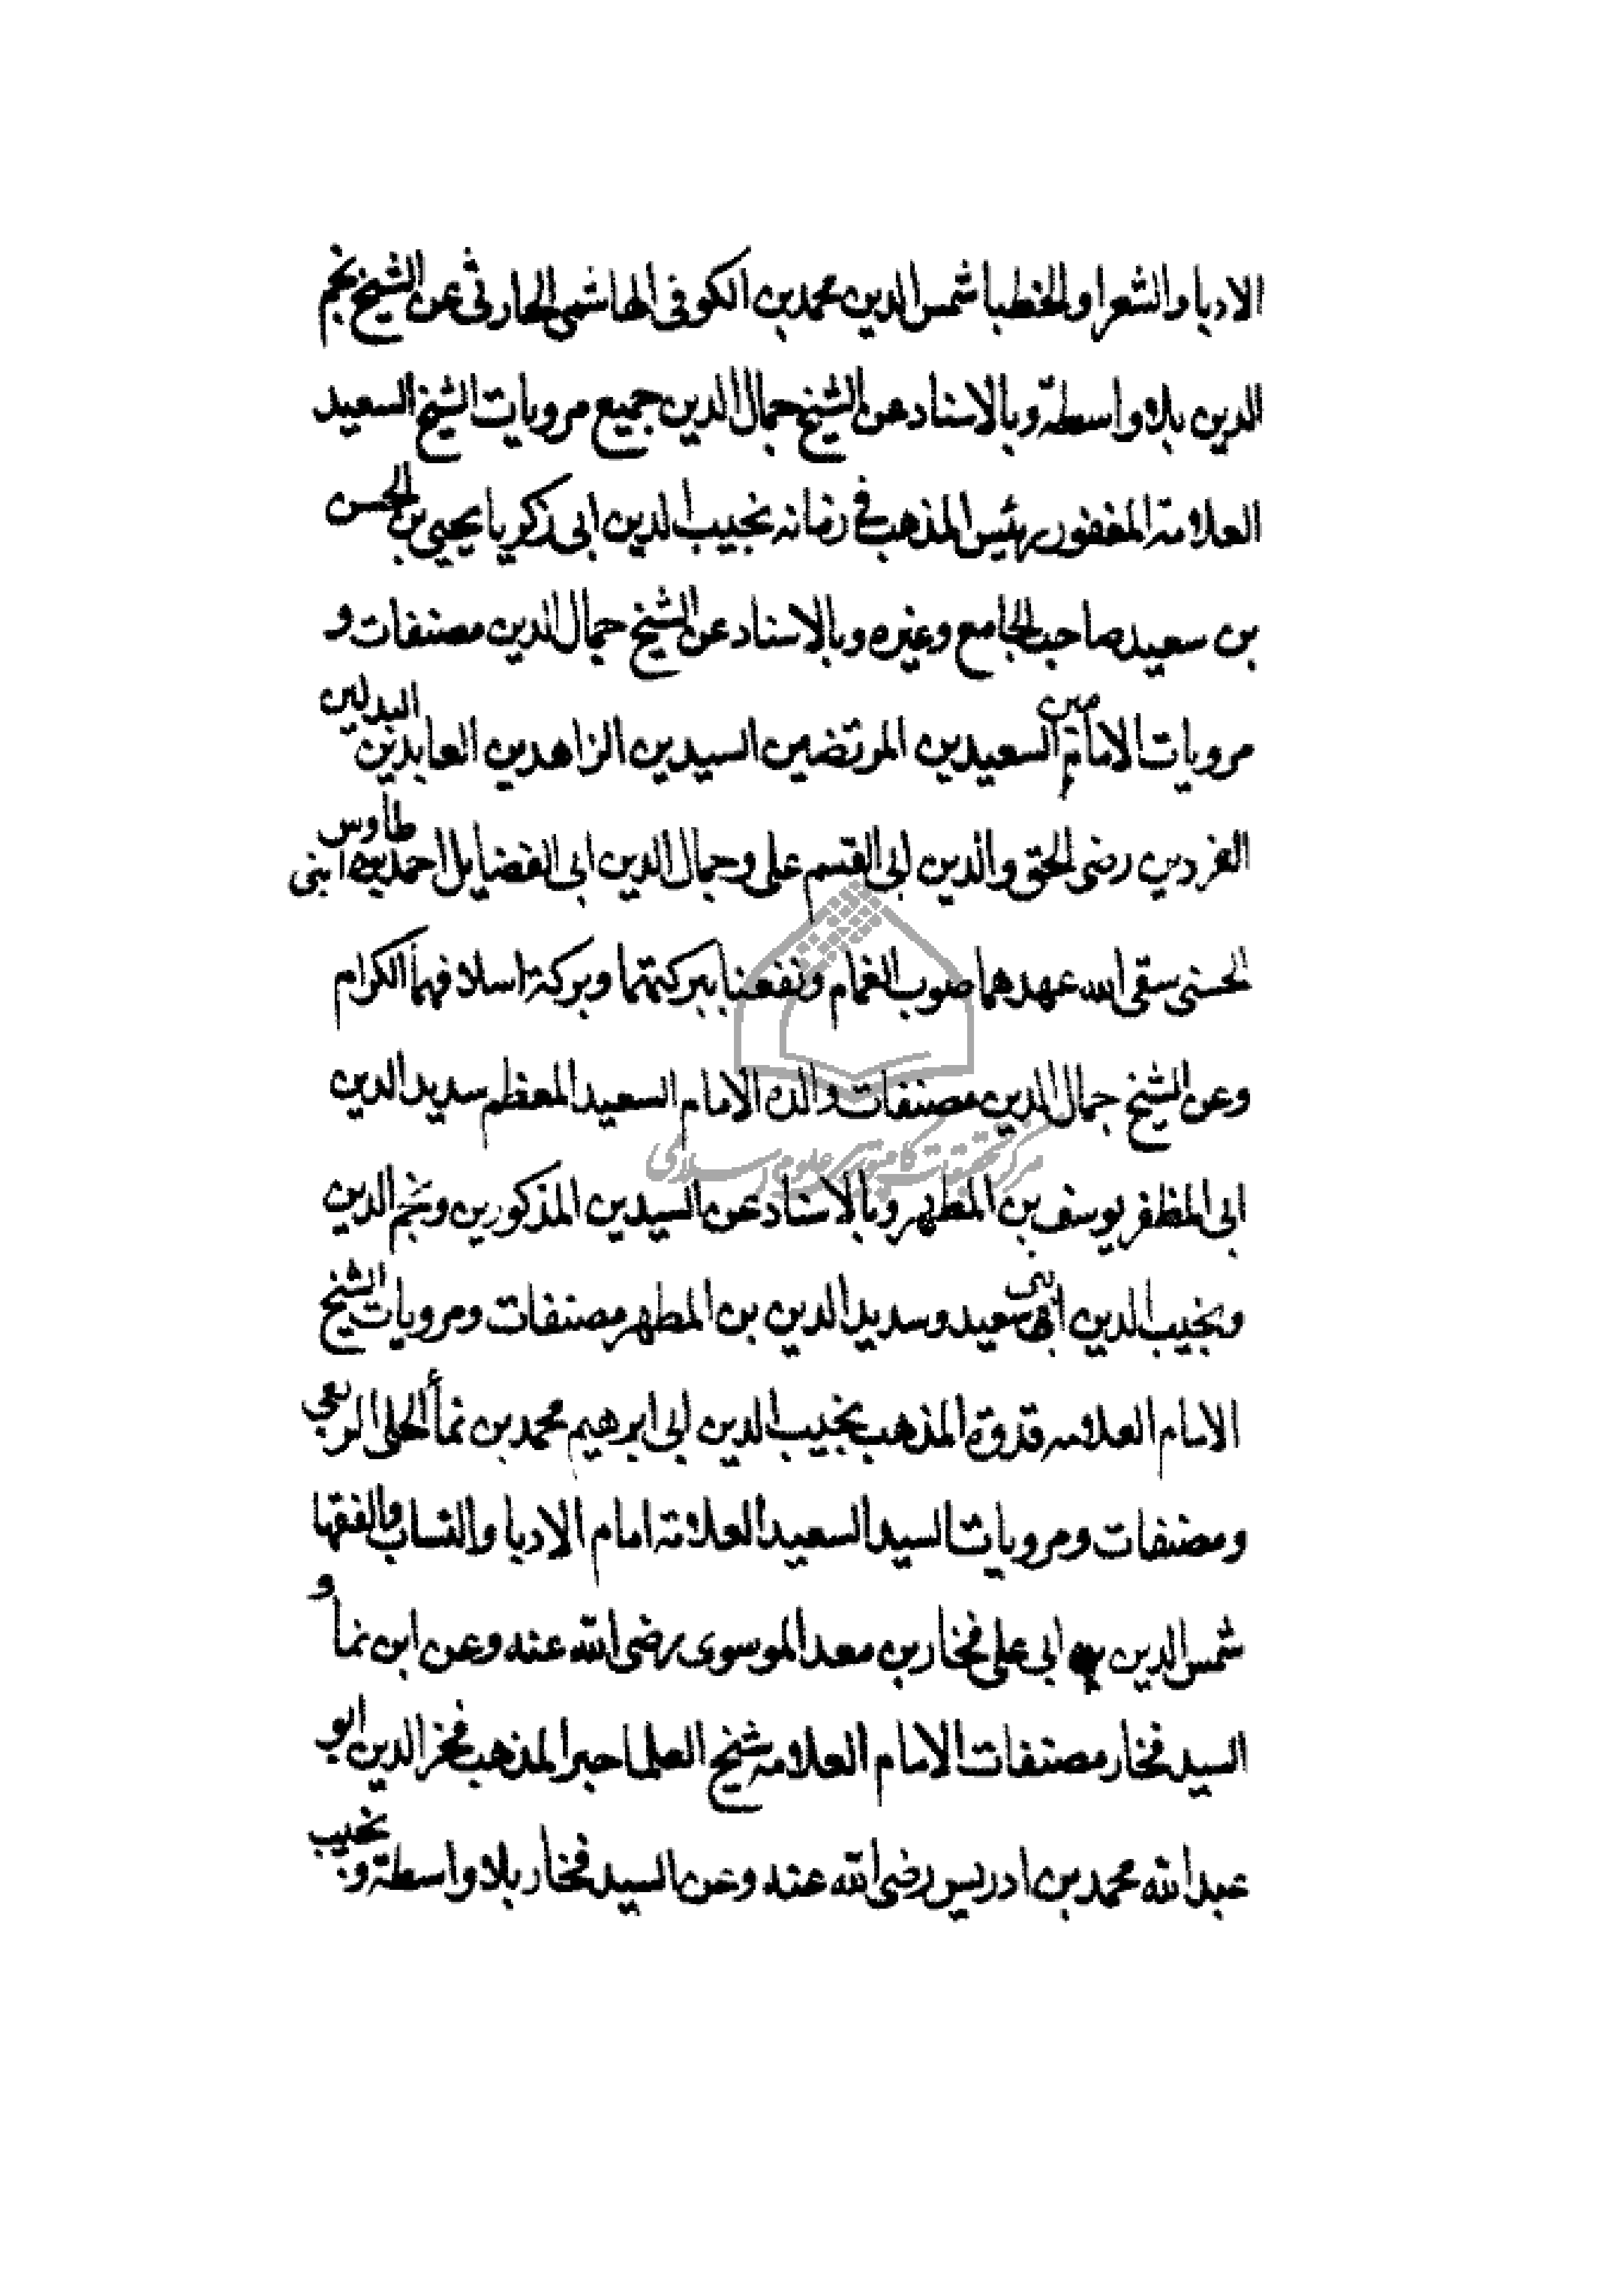 الادبا والشعرا والخطبا شمس الدين محمد بن الكوفى الهاشمى الحارثى عن الشيخ نجم
الدين بلا واسطة وبالاسناد عن الشيخ جمال الدين جميع مرويات الشيخ السعيد
العلامة المغفور رئيس المذهب فى زمانه نجيب الدين ابى زكريا يحيى بن الحسن
بن سعيد صاحب الجامع وغيره وبالاسناد عن الشيخ جمال الدين مصنفات و
مرويات الامامين السعيدين المرتضين السيدين الزاهدين العابدين البدلين
الفردين رضى الحق والدين ابى القسم على وجمال الدين ابى الفضايل احمد ابنى طاوس
الحسنى سقى الله عهدهما صوب الغمام ونفعنا ببركتهما وبركة اسلافهما الكرام
وعن الشيخ جمال الدين مصنفات والده الامام السعيد المعظم سديد الدين
ابى المظفر يوسف بن المطهر وبالاسناد عن السيدين المذكورين ونجم الدين
ونجيب الدين ابنى سعيد وسديد الدين بن المطهر مصنفات ومرويات الشيخ
الامام العلامه قدوة المذهب نجيب الدين ابى ابرهيم محمد بن نما الحلى الربعى
ومصنفات ومرويات السيد السعيد العلامة امام الادبا والنساب والفقها
شمس الدين ابى على فخار بن معد الموسوى رضى الله عنه وعن ابن نما و
السيد فخار مصنفات الامام العلامه شيخ العلما حبر المذهب فخر الدين ابو
عبد الله محمد بن ادريس رضى الله عنه وعن السيد فخار بلا واسطة و نجيب
مركز تحقيقات كامپيوترى علوم اسلامى